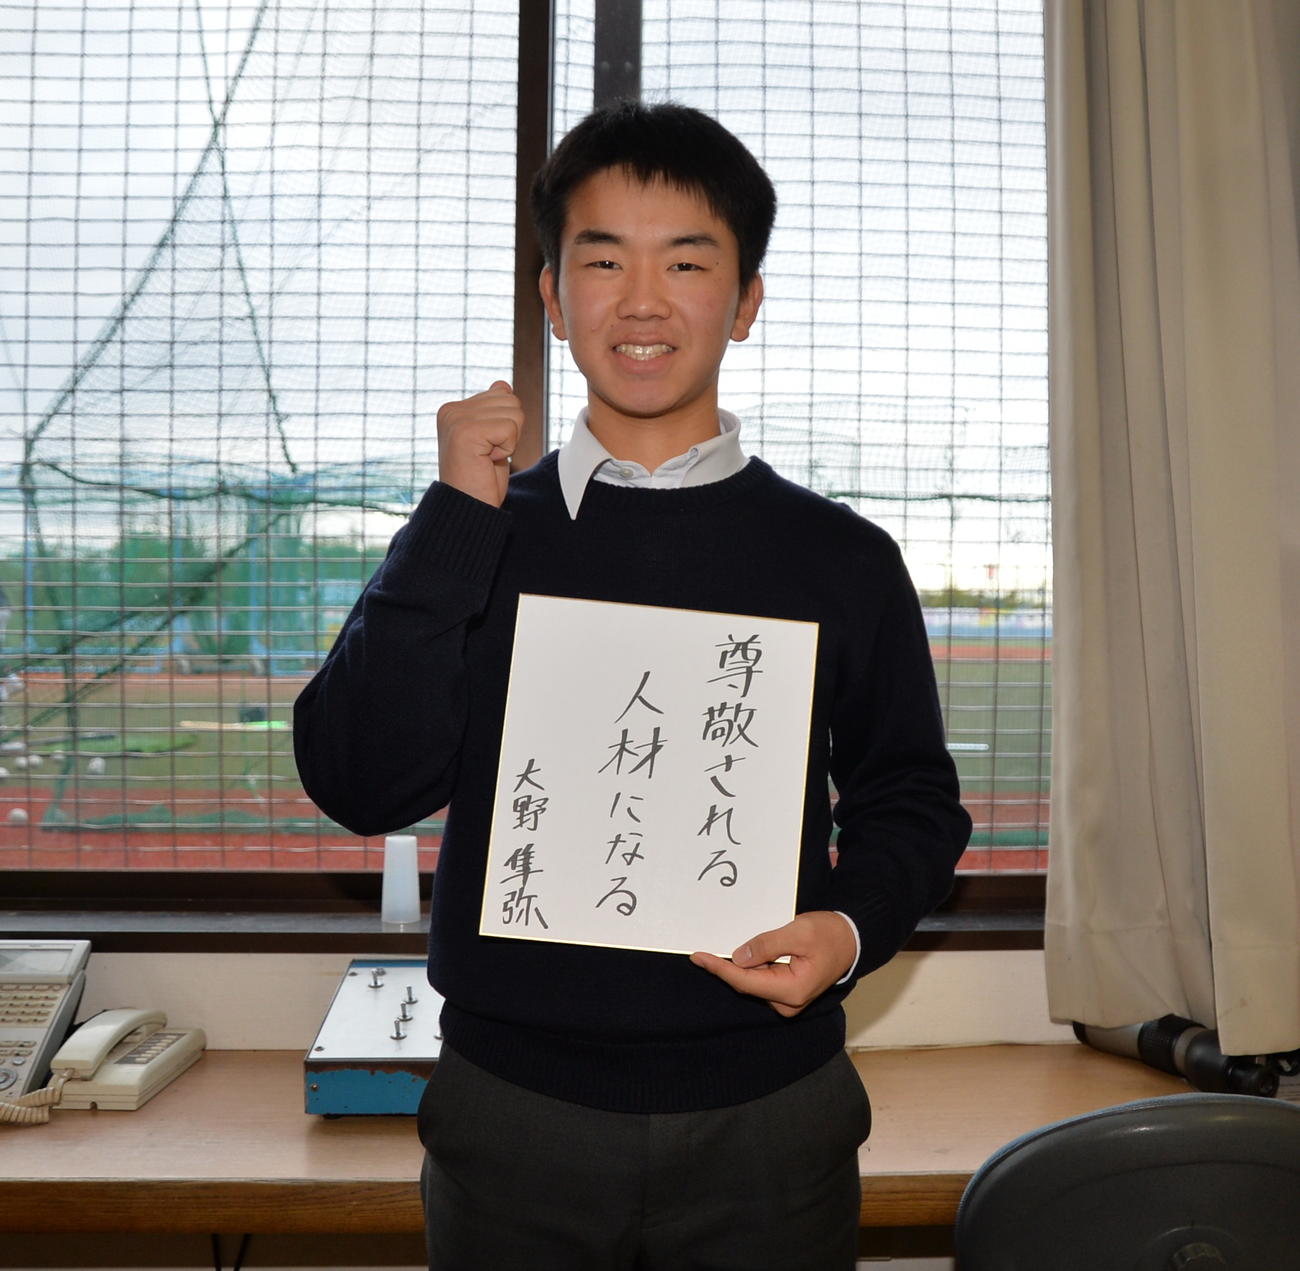 尊敬される
人材になる
大野隼弥